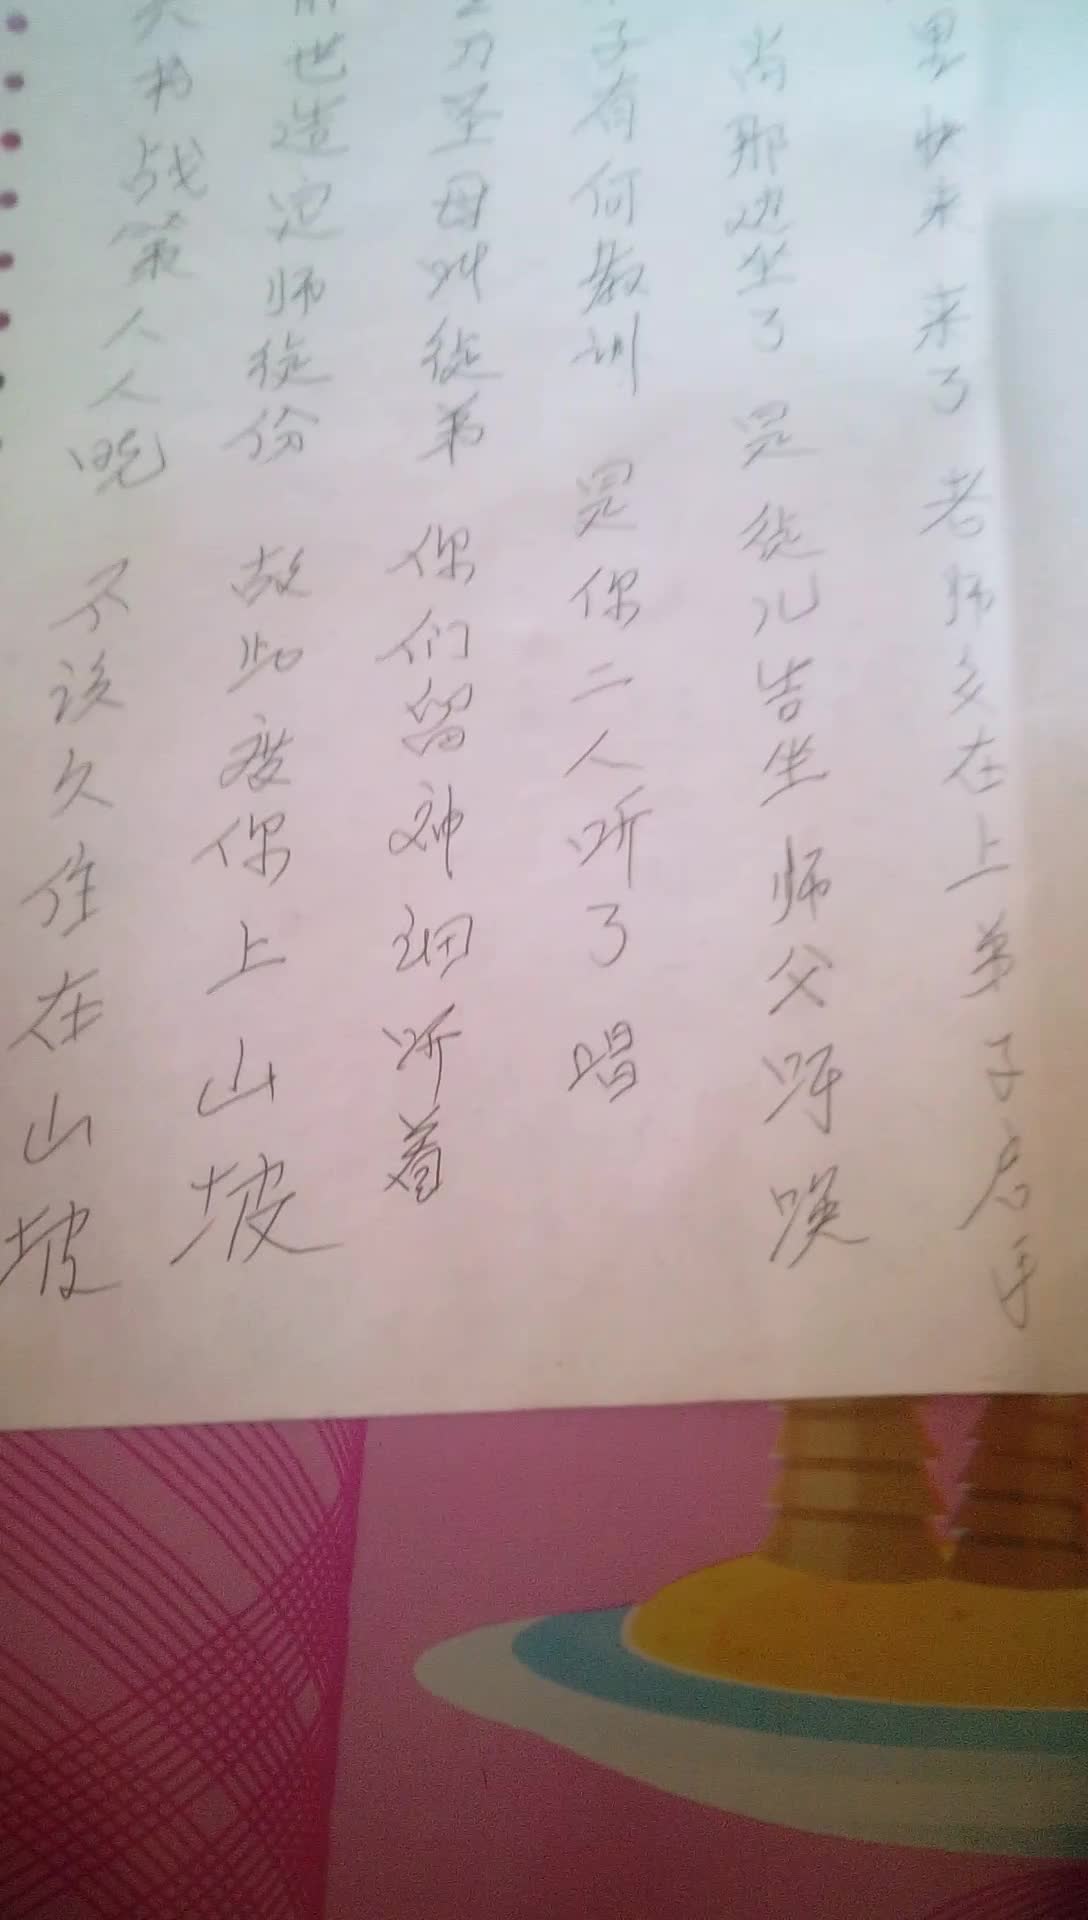 里快来 来了 老师父在上 弟子启手
尚那边坐了 是 徒儿告坐 师父呀 唤
子有何教训 是你二人听了 唱
刀圣母叫徒弟 你们留神细听着
世造定师徒份 故此度你上山坡
书战策人人晓 不该久住在山坡